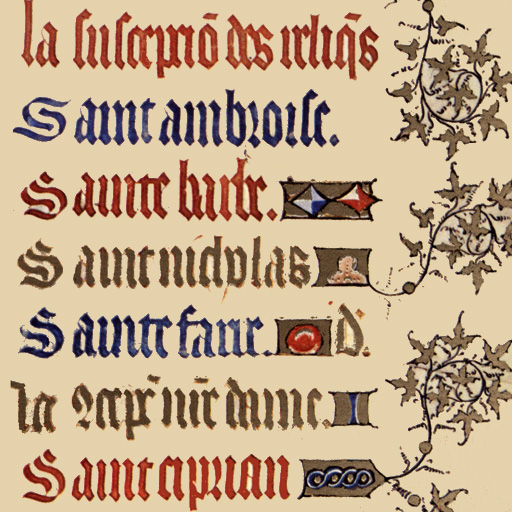 la susceptiō des reliq̄s
Saint ambroise.
Sainte barbe.
Saint nicholas
Sainte fare. id'.
la ꝯcept̄ nr̄e dame.
Saint ciprian